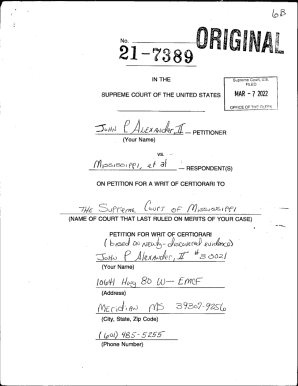 6B
ORIGINAL
No.
21-7389
Supreme Court, U.S.
FILED
MAR - 7 2022
OFFICE OF THE CLERK
IN THE
SUPREME COURT OF THE UNITED STATES
John P Alexander, II — PETITIONER
(Your Name)
vs.
Mississippi, et al — RESPONDENT(S)
ON PETITION FOR A WRIT OF CERTIORARI TO
THE Supreme Court of Mississippi
(NAME OF COURT THAT LAST RULED ON MERITS OF YOUR CASE)
PETITION FOR WRIT OF CERTIORARI
(based on newly-discovered evidence)
John P Alexander, II #30021
(Your Name)
10641 Hwy 80 W — EMCF
(Address)
Meridian MS 39307-9256
(City, State, Zip Code)
(601) 485-5255
(Phone Number)